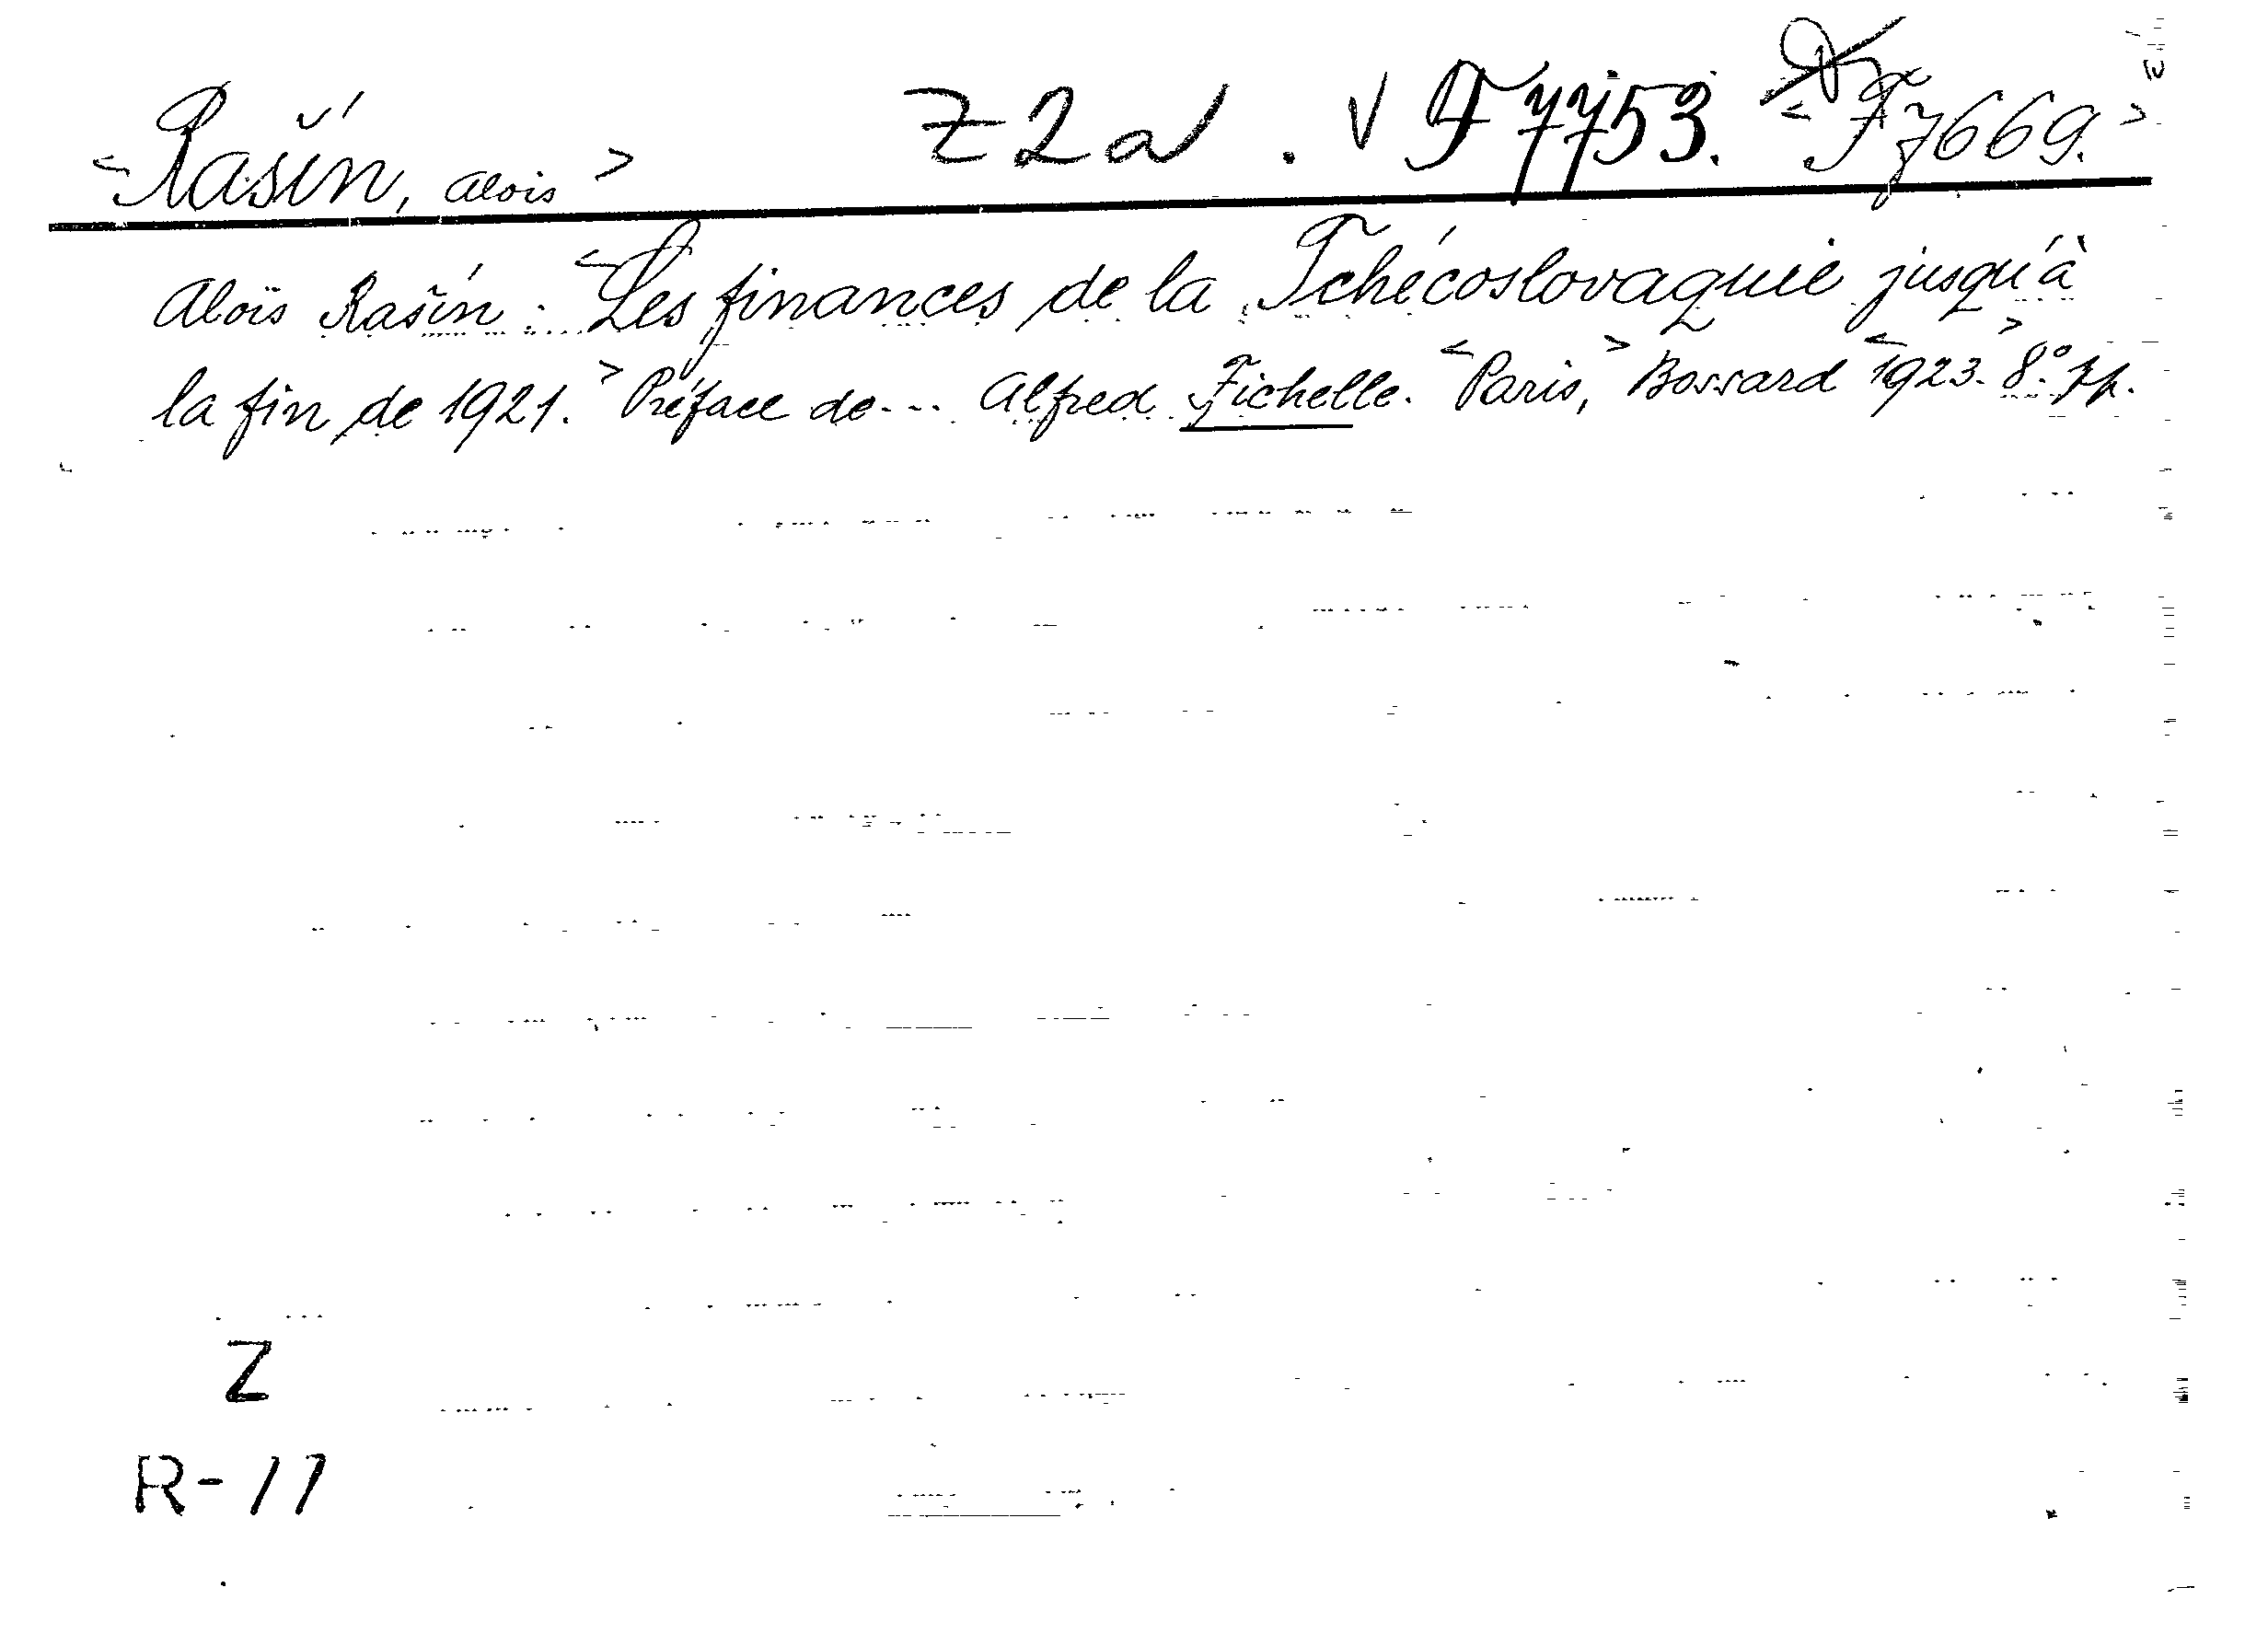 <Rašín, Alois> Z2a. V F7753. <F7669.>
Aloïs Rašín: <Les finances de la Tchécoslovaquie jusqu'à
la fin de 1921.> Préface de... Alfred Fichelle. <Paris,> Bossard <1923.> 8°.
Z
R-11